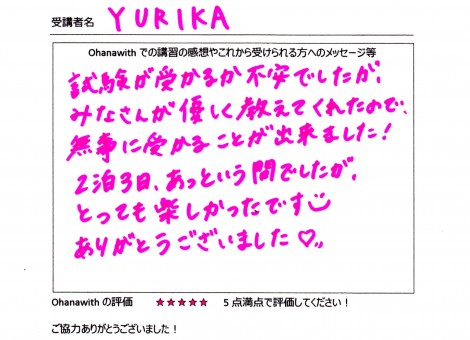 受講者名 YURIKA
Ohanawith での講習の感想やこれから受けられる方へのメッセージ等
試験が受かるか不安でしたが、
みなさんが優しく教えてくれたので、
無事に受かることが出来ました！
2泊3日、あっという間でしたが、
とっても楽しかったです
ありがとうございました♡,,
Ohanawith の評価 ★★★★★ 5 点満点で評価してください！
ご協力ありがとうございました！